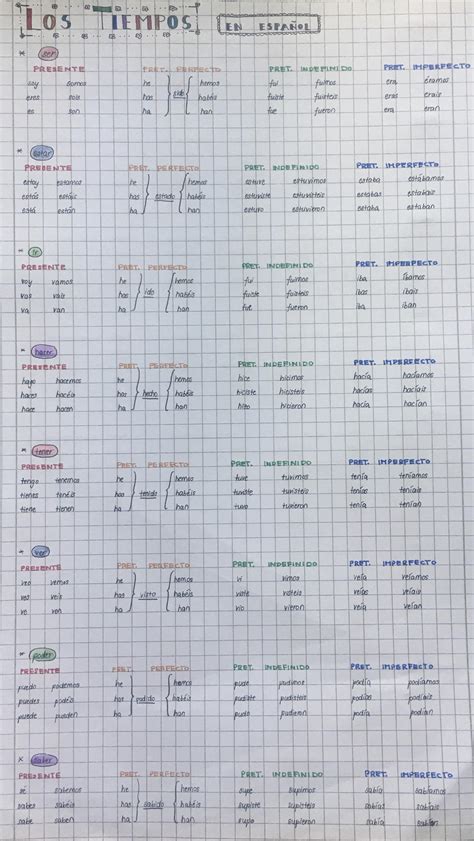 LOS TIEMPOS EN ESPAÑOL
* ser
PRESENTE PRET. PERFECTO PRET. INDEFINIDO PRET. IMPERFECTO
soy somos he hemos fui fuimos era éramos
eres sois has sido habéis fuiste fuisteis eras erais
es son ha han fue fueron era eran
* estar
PRESENTE PRET. PERFECTO PRET. INDEFINIDO PRET. IMPERFECTO
estoy estamos he hemos estuve estuvimos estaba estábamos
estás estáis has estado habéis estuviste estuvisteis estabas estabais
está están ha han estuvo estuvieron estaba estaban
* ir
PRESENTE PRET. PERFECTO PRET. INDEFINIDO PRET. IMPERFECTO
voy vamos he hemos fui fuimos iba íbamos
vas vais has ido habéis fuiste fuisteis ibas ibais
va van ha han fue fueron iba iban
* hacer
PRESENTE PRET. PERFECTO PRET. INDEFINIDO PRET. IMPERFECTO
hago hacemos he hemos hice hicimos hacía hacíamos
haces hacéis has hecho habéis hiciste hicisteis hacías hacíais
hace hacen ha han hizo hicieron hacía hacían
* tener
PRESENTE PRET. PERFECTO PRET. INDEFINIDO PRET. IMPERFECTO
tengo tenemos he hemos tuve tuvimos tenía teníamos
tienes tenéis has tenido habéis tuviste tuvisteis tenías teníais
tiene tienen ha han tuvo tuvieron tenía tenían
* ver
PRESENTE PRET. PERFECTO PRET. INDEFINIDO PRET. IMPERFECTO
veo vemos he hemos vi vimos veía veíamos
ves veis has visto habéis viste visteis veías veíais
ve ven ha han vio vieron veía veían
* poder
PRESENTE PRET. PERFECTO PRET. INDEFINIDO PRET. IMPERFECTO
puedo podemos he hemos pude pudimos podía podíamos
puedes podéis has podido habéis pudiste pudisteis podías podíais
puede pueden ha han pudo pudieron podía podían
* saber
PRESENTE PRET. PERFECTO PRET. INDEFINIDO PRET. IMPERFECTO
sé sabemos he hemos supe supimos sabía sabíamos
sabes sabéis has sabido habéis supiste supisteis sabías sabíais
sabe saben ha han supo supieron sabía sabían